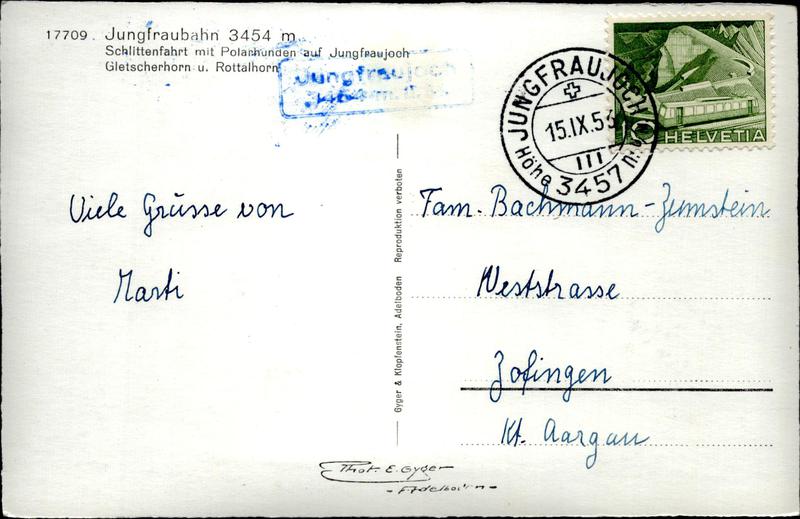 17709. Jungfraubahn 3454 m
Schlittenfahrt mit Polarhunden auf Jungfraujoch
Gletscherhorn u. Rottalhorn
Jungfraujoch
JUNGFRAUJOCH
15.IX.53
III
Höhe 3457 m.
10 HELVETIA
Viele Grüsse von
Marti
Gyger & Klopfenstein, Adelboden Reproduktion verboten
Fam. Bachmann-Zumstein
Weststrasse
Zofingen
Kt. Aargau
Phot. E. Gyger
- Adelboden -